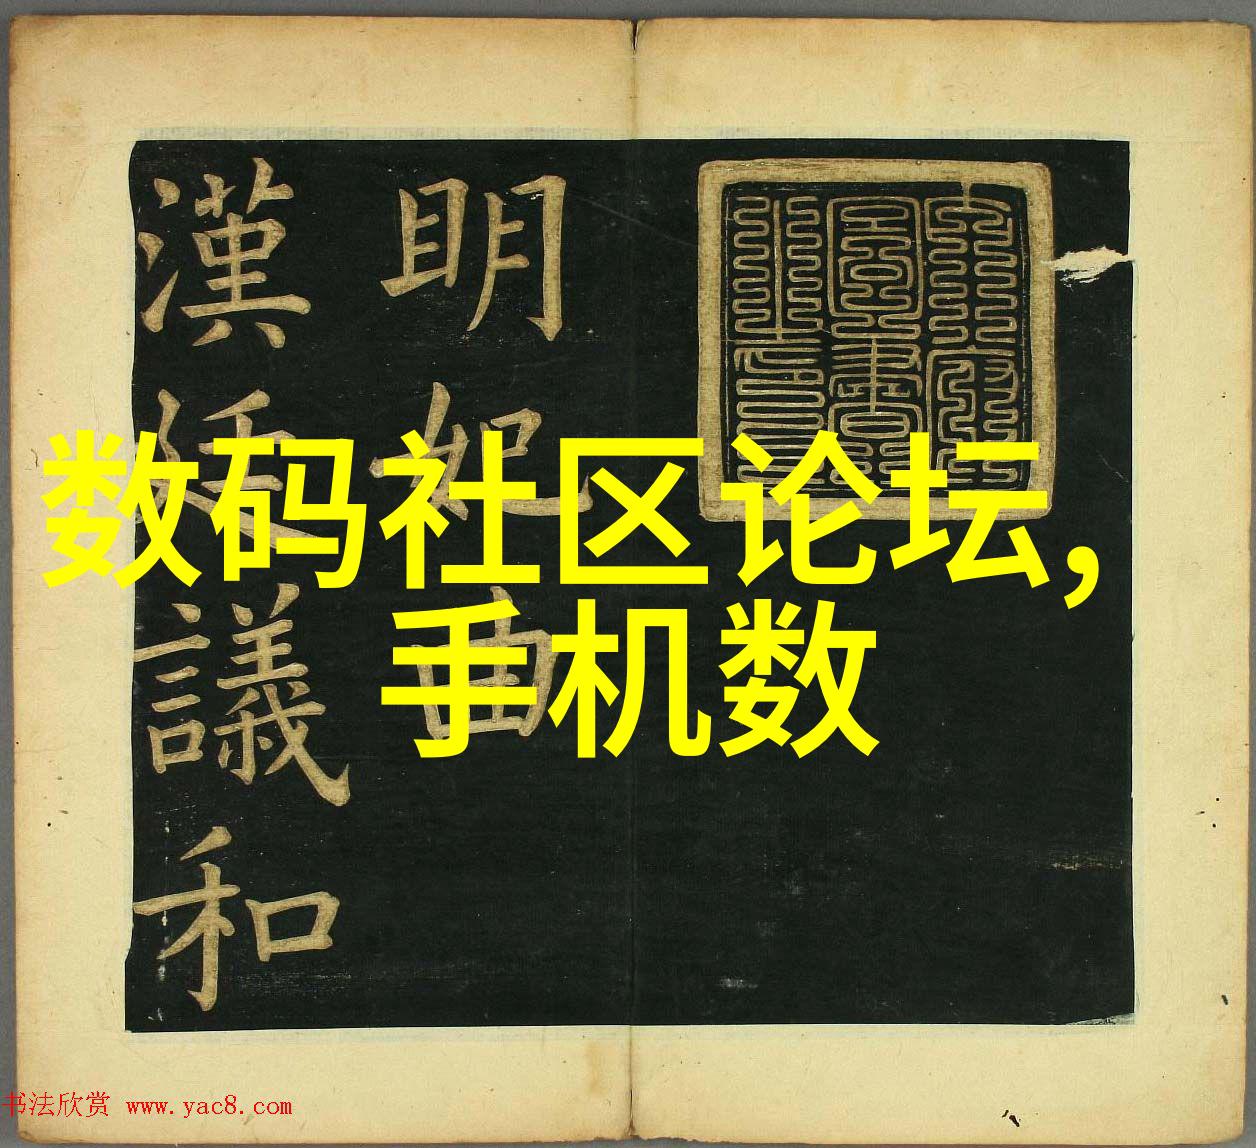 数码社区论坛,
手机数
明妃曲
漢廷議和
书法欣赏 www.yac8.com